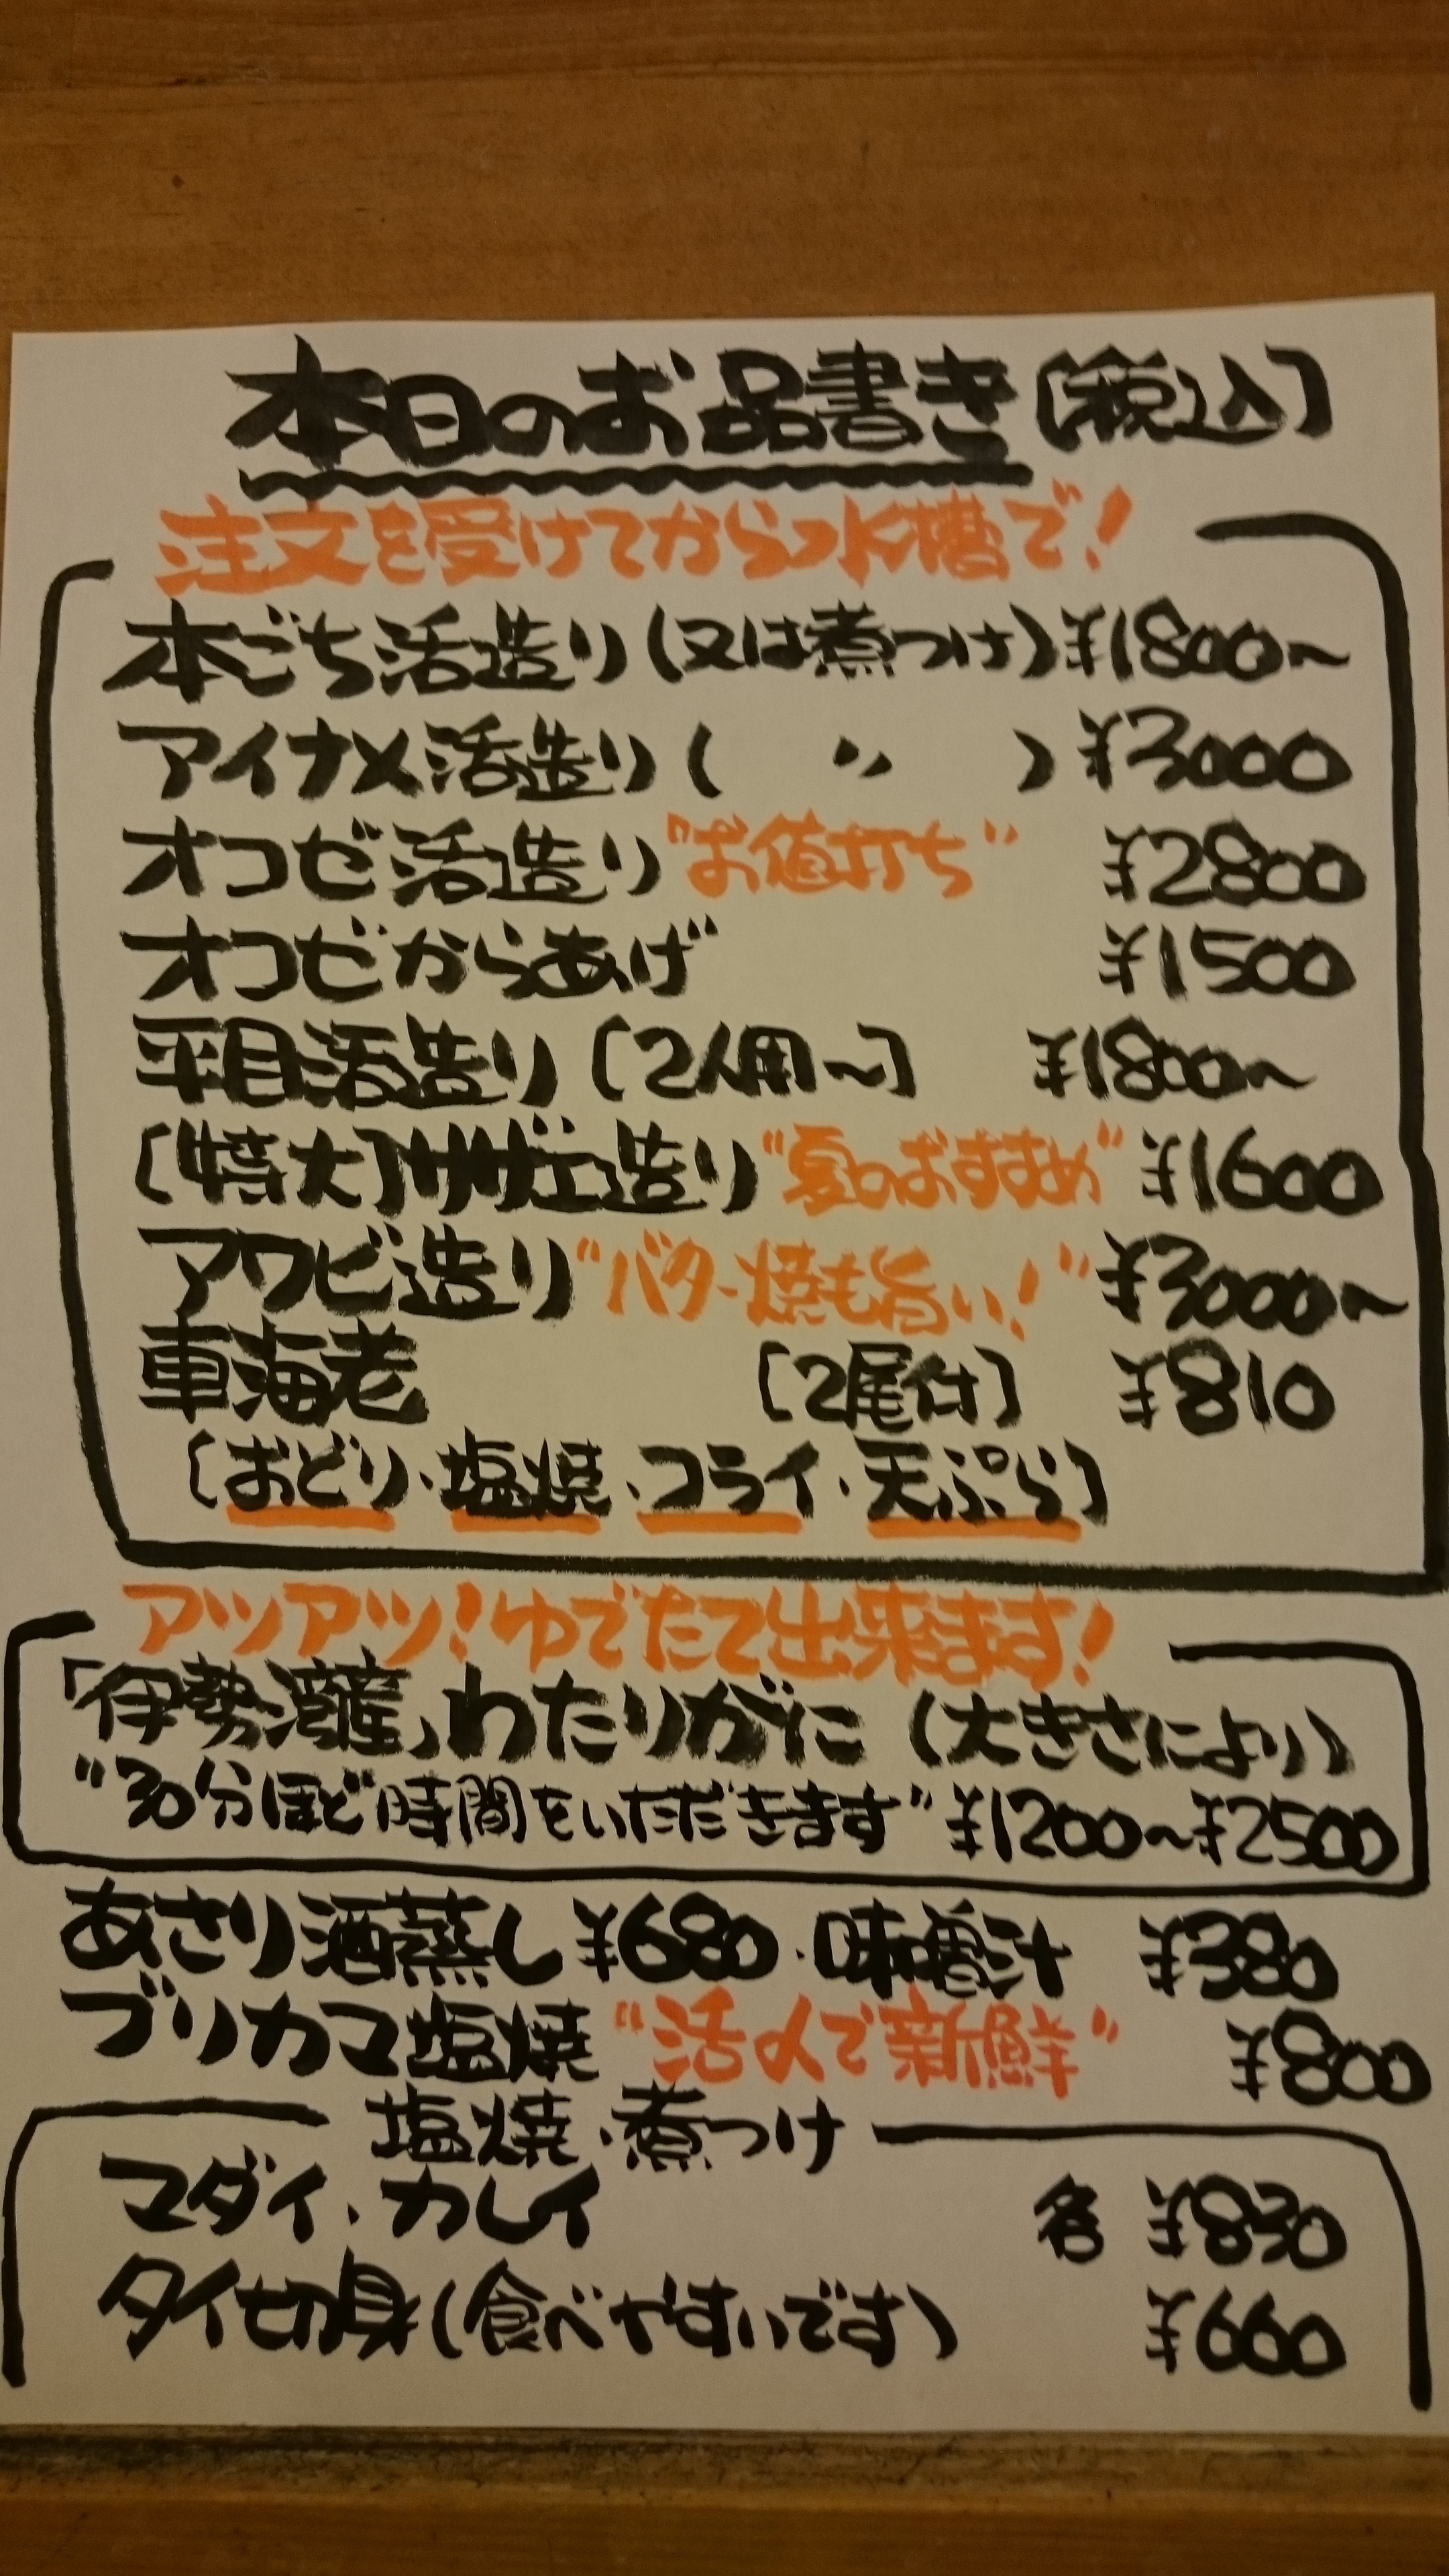 本日のお品書き〔税込〕
注文を受けてから水槽で!
本ごち活造り(又は煮つけ)¥1800〜
アイナメ活造り( 〃 )¥3000
オコゼ活造り"お値打ち" ¥2800
オコゼからあげ ¥1500
平目活造り〔2人用〜〕 ¥1800〜
〔特大〕サザエ造り"夏のおすすめ" ¥1600
アワビ造り"バター焼も旨い!" ¥3000〜
車海老 〔2尾付〕 ¥810
〔おどり・塩焼・フライ・天ぷら〕
アツアツ!ゆでたて出来ます!
「伊勢湾産」わたりがに(大きさにより)
"30分ほど時間をいただきます" ¥1200〜¥2500
あさり酒蒸し¥680・味噌汁 ¥380
ブリカマ塩焼"活〆で新鮮" ¥800
塩焼・煮つけ
マダイ、カレイ 各 ¥850
タイ切身(食べやすいです) ¥690